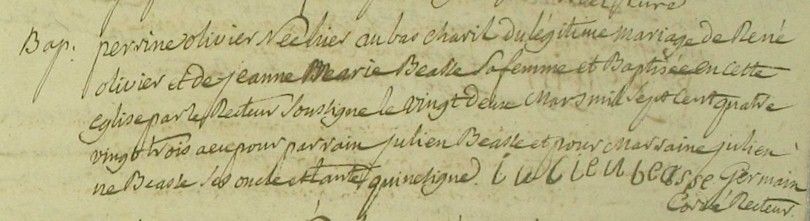 Bap. perrine olivier Née hier au bas charil du légitime mariage de René
olivier et de jeanne Marie Beasse sa femme et Baptisée en cette
église par le Recteur soussigne le vingt deux Mars mil sept cent quatre
vingt trois a eu pour parrain julien Béasse et pour Marraine julien
ne Beasse ses oncle et tante qui ne signe. julien beasse Germain
Recteur